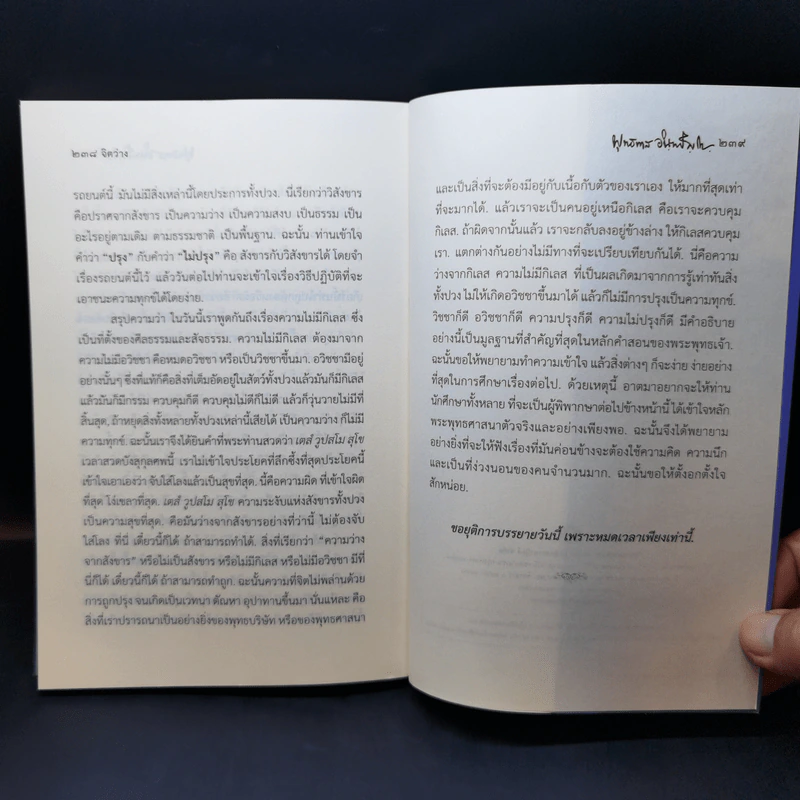 ๒๓๘ จิตว่าง
รถยนต์นี้ มันไม่มีสิ่งเหล่านี้โดยประการทั้งปวง. นี่เรียกว่าวิสังขาร
คือปราศจากสังขาร เป็นความว่าง เป็นความสงบ เป็นธรรม เป็น
อะไรอยู่ตามเดิม ตามธรรมชาติ เป็นพื้นฐาน. ฉะนั้น ท่านเข้าใจ
คำว่า “ปรุง” กับคำว่า “ไม่ปรุง” คือ สังขารกับวิสังขารได้ โดยจำ
เรื่องรถยนต์นี้ไว้ แล้ววันต่อไปท่านจะเข้าใจเรื่องวิธีปฏิบัติที่จะ
เอาชนะความทุกข์ได้โดยง่าย.
สรุปความว่า ในวันนี้เราพูดกันถึงเรื่องความไม่มีกิเลส ซึ่ง
เป็นที่ตั้งของศีลธรรมและสัจธรรม. ความไม่มีกิเลส ต้องมาจาก
ความไม่มีอวิชชา คือหมดอวิชชา หรือเป็นวิชชาขึ้นมา. อวิชชามีอยู่
อย่างนั้นๆ ซึ่งที่แท้ก็คือสิ่งที่เต็มอัดอยู่ในสัตว์ทั้งปวงแล้วมันก็มีกิเลส
แล้วมันก็มีกรรม ควบคุมก็ดี ควบคุมไม่ดีก็ไม่ดี แล้วก็วุ่นวายไม่มีที่
สิ้นสุด. ถ้าหยุดสิ่งทั้งหลายทั้งปวงเหล่านี้เสียได้ เป็นความว่าง ก็ไม่มี
ความทุกข์. ฉะนั้นเราจึงได้ยินคำที่พระท่านสวดว่า เตสํ วูปสโม สุโข
เวลาสวดบังสุกุลศพนี้ เราไม่เข้าใจประโยคที่ลึกซึ้งที่สุดประโยคนี้
เข้าใจเอาเองว่า จับใส่โลงแล้วเป็นสุขที่สุด. นี่คือความผิด ที่เข้าใจผิด
ที่สุด โง่เขลาที่สุด. เตสํ วูปสโม สุโข ความระงับแห่งสังขารทั้งปวง
เป็นความสุขที่สุด. คือมันว่างจากสังขารอย่างที่ว่านี้ ไม่ต้องจับ
ใส่โลง ที่นี่ เดี๋ยวนี้ก็ได้ ถ้าสามารถทำได้. สิ่งที่เรียกว่า “ความว่าง
จากสังขาร” หรือไม่เป็นสังขาร หรือไม่มีกิเลส หรือไม่มีอวิชชา มีที่
นี่ก็ได้ เดี๋ยวนี้ก็ได้ ถ้าสามารถทำถูก. ฉะนั้นความที่จิตไม่พล่านด้วย
การถูกปรุง จนเกิดเป็นเวทนา ตัณหา อุปาทานขึ้นมา นั่นแหละ คือ
สิ่งที่เราปรารถนาเป็นอย่างยิ่งของพุทธบริษัท หรือของพุทธศาสนา
พุทธทาส อินทปัญโญ ๒๓๙
และเป็นสิ่งที่จะต้องมีอยู่กับเนื้อกับตัวของเราเอง ให้มากที่สุดเท่า
ที่จะมากได้. แล้วเราจะเป็นคนอยู่เหนือกิเลส คือเราจะควบคุม
กิเลส. ถ้าผิดจากนั้นแล้ว เราจะกลับลงอยู่ข้างล่าง ให้กิเลสควบคุม
เรา. แตกต่างกันอย่างไม่มีทางที่จะเปรียบเทียบกันได้. นี่คือความ
ว่างจากกิเลส ความไม่มีกิเลส ที่เป็นผลเกิดมาจากการรู้เท่าทันสิ่ง
ทั้งปวง ไม่ให้เกิดอวิชชาขึ้นมาได้ แล้วก็ไม่มีการปรุงเป็นความทุกข์.
วิชชาก็ดี อวิชชาก็ดี ความปรุงก็ดี ความไม่ปรุงก็ดี มีคำอธิบาย
อย่างนี้เป็นมูลฐานที่สำคัญที่สุดในหลักคำสอนของพระพุทธเจ้า.
ฉะนั้นขอให้พยายามทำความเข้าใจ แล้วสิ่งต่างๆ ก็จะง่าย ง่ายอย่าง
ที่สุดในการศึกษาเรื่องต่อไป. ด้วยเหตุนี้ อาตมาอยากจะให้ท่าน
นักศึกษาทั้งหลาย ที่จะเป็นผู้พิพากษาต่อไปข้างหน้านี้ ได้เข้าใจหลัก
พระพุทธศาสนาตัวจริงและอย่างเพียงพอ. ฉะนั้นจึงได้พยายาม
อย่างยิ่งที่จะให้ฟังเรื่องที่มันค่อนข้างจะต้องใช้ความคิด ความนึก
และเป็นที่ง่วงนอนของคนจำนวนมาก. ฉะนั้นขอให้ตั้งอกตั้งใจ
สักหน่อย.
ขอยุติการบรรยายวันนี้ เพราะหมดเวลาเพียงเท่านี้.